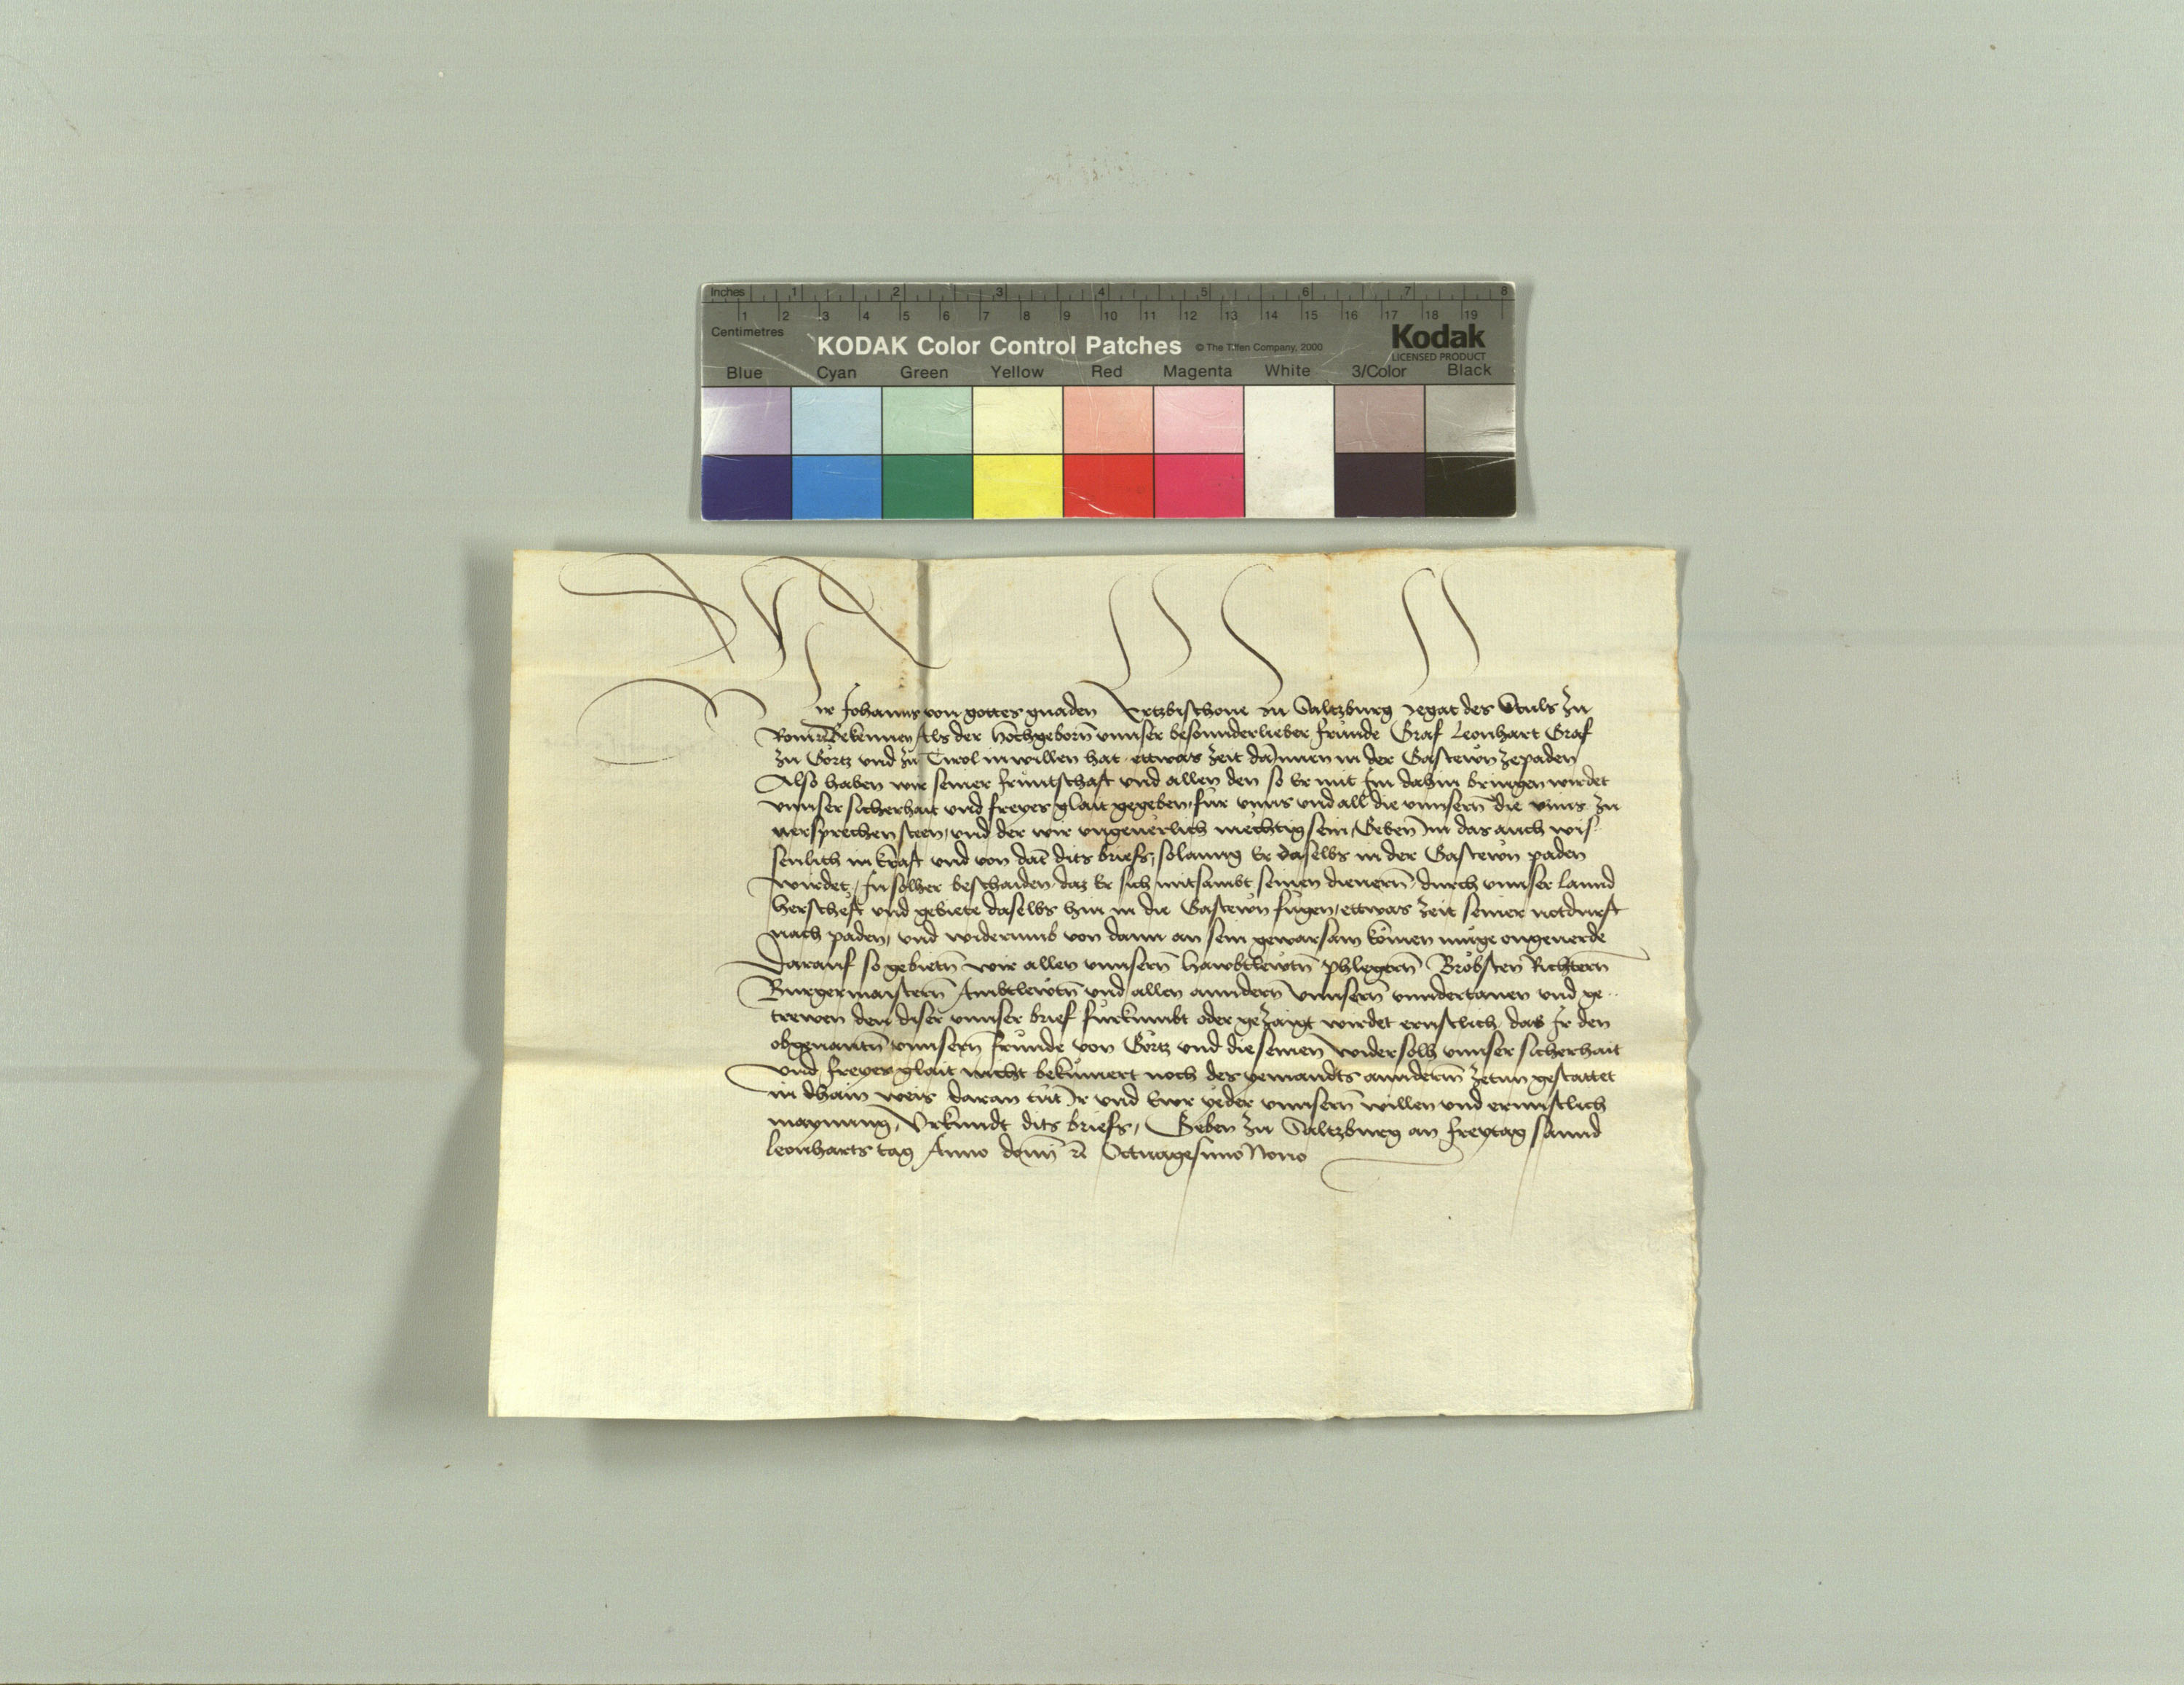 Inches 1 2 3 4 5 6 7 8
1 2 3 4 5 6 7 8 9 10 11 12 13 14 15 16 17 18 19
Centimetres
KODAK Color Control Patches © The Tiffen Company, 2000 Kodak
LICENSED PRODUCT
Blue Cyan Green Yellow Red Magenta White 3/Color Black
Wir Johanns von gottes gnaden Ertzbischoue zu Saltzburg Legat des Stuls zu
Rom Bekennen Als der Hochgeborn vnnser besonnderlieber fründe Graf Leonhart Graf
zu Görtz vnd zu Tirol in willen hat ettwas zeit dannen in der Gastewn zepaden
Also haben wir seiner früntschaft vnd allen den so Er mit Im dahin bringen wirdet
vnnser sicherhait vnd freyes glait gegeben, für vnns vnd all die vnnsern die vnns zu
uersprechen steen, vnd der wir vngeuerlich mechtig sein, Geben in das auch wis-
senlich in kraft vnd von dat dits briefs, solanng Er daselbs in der Gastewn paden
wirdet, In solher beschaiden, daz Er sich mitsambt seinen dienern, durch vnnser lannd
herscheft vnd gebiete daselbs hin in die Gastewn fügen, ettwas zeit seiner notdurft
nach paden, vnd widerumb von dann an sein gewarsam komen müge ongeuerde
Darauf so gebietn wir allen vnnsern Hawbtlewtn phlegern Bröbsten Richtern
Burgermaistern Ambtlewtn vnd allen anndern vnnsern vnndertanen vnd ge-
trewen den diser vnnser brief fürkumbt oder gezaigt wirdet ernstlich, das Ir den
obgenantn vnnsern fründe von Görtz vnd die seinen wider solh vnnser sicherhait
vnd freyes glait nicht bekümert noch des yemandts anndern zetun gestattet
in dhain weis daran tüt Ir vnd Ewr yeder vnnsern willen vnd ernnstlich
maynung, Vrkundt dits briefs, Geben zu Saltzburg an freytag sannd
leonharts tag Anno domini Octuagesimo Nono